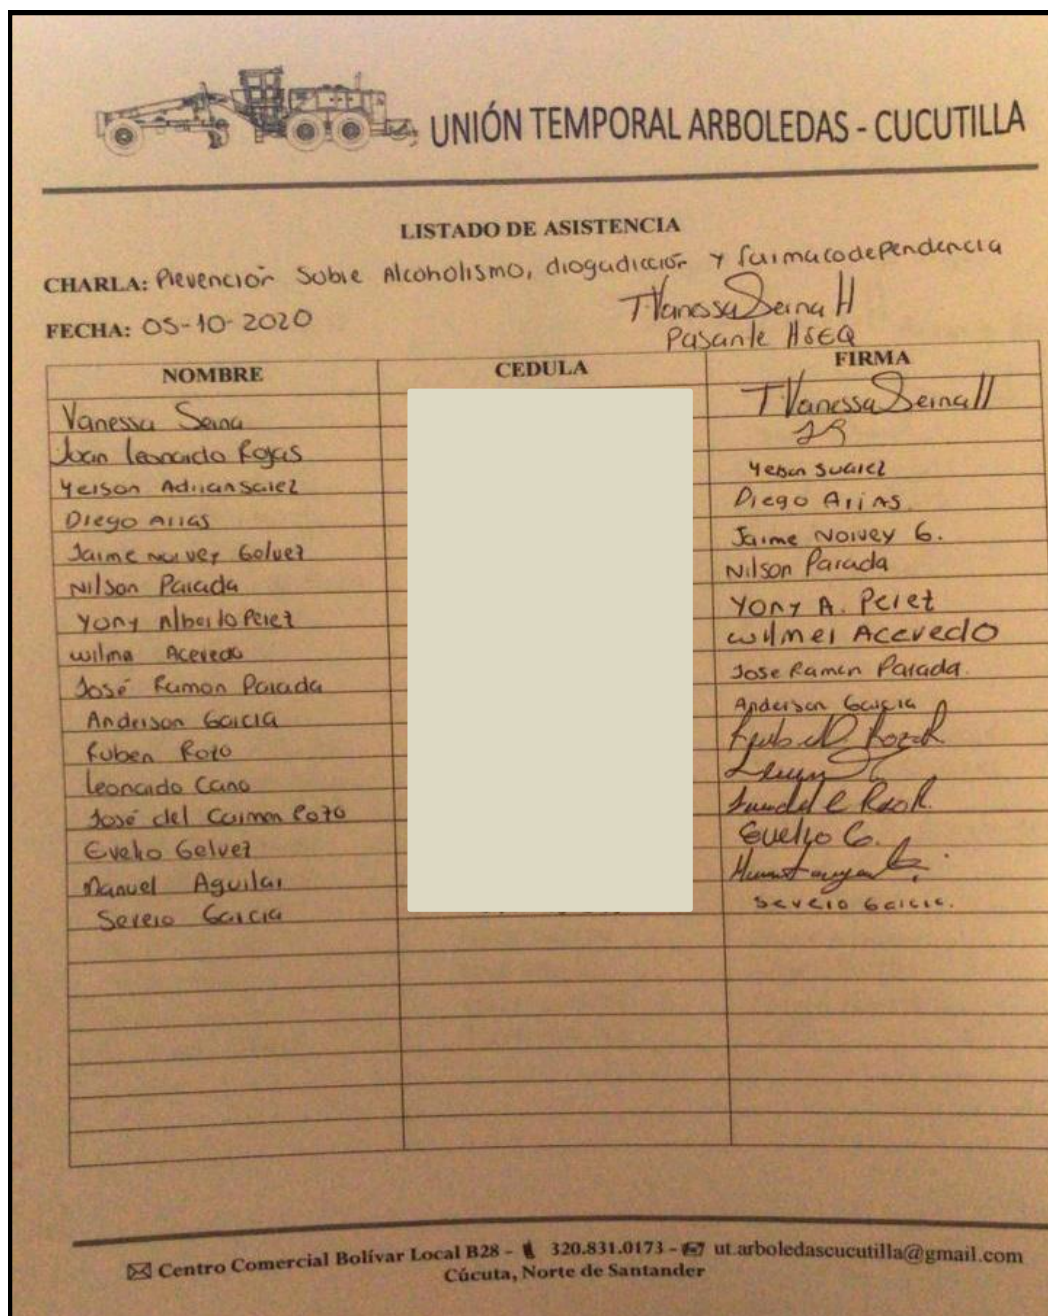 UNIÓN TEMPORAL ARBOLEDAS - CUCUTILLA
LISTADO DE ASISTENCIA
CHARLA: Prevención Sobre Alcoholismo, drogadicción y farmacodependencia
FECHA: 05-10-2020 T Vanessa Serna H
Pasante HSEQ
NOMBRE CEDULA FIRMA
Vanessa Serna T Vanessa Serna H
Juan Leonardo Rojas
Yerson Adrian Yerson Suarez
Diego Arias Diego Arias
Jaime Norvey Gelvez Jaime Norvey G.
Nilson Parada Nilson Parada
Yony Alberto Perez Yony A. Perez
Wilmer Acevedo Wilmer Acevedo
José Ramon Parada Jose Ramon Parada.
Anderson Garcia Anderson Garcia
Ruben Rozo
Leonardo Cano
José del Carmen Rozo
Evelio Gelvez Evelio G.
Manuel Aguilar
Severo Garcia Severo Garcia.
Centro Comercial Bolívar Local B28 - 320.831.0173 - ut.arboledascucutilla@gmail.com
Cúcuta, Norte de Santander